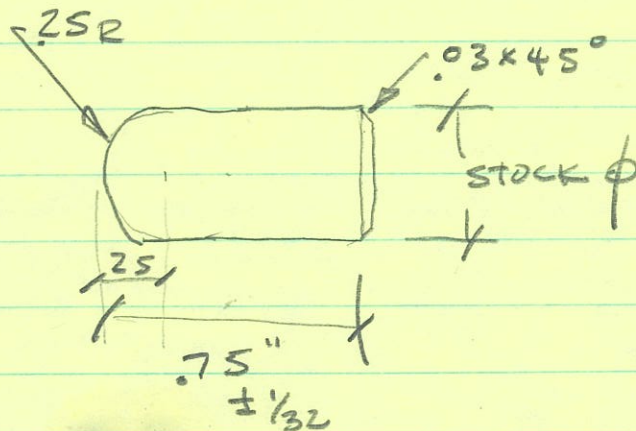 .25R
.03×45°
STOCK ϕ
25
.75"
± 1/32